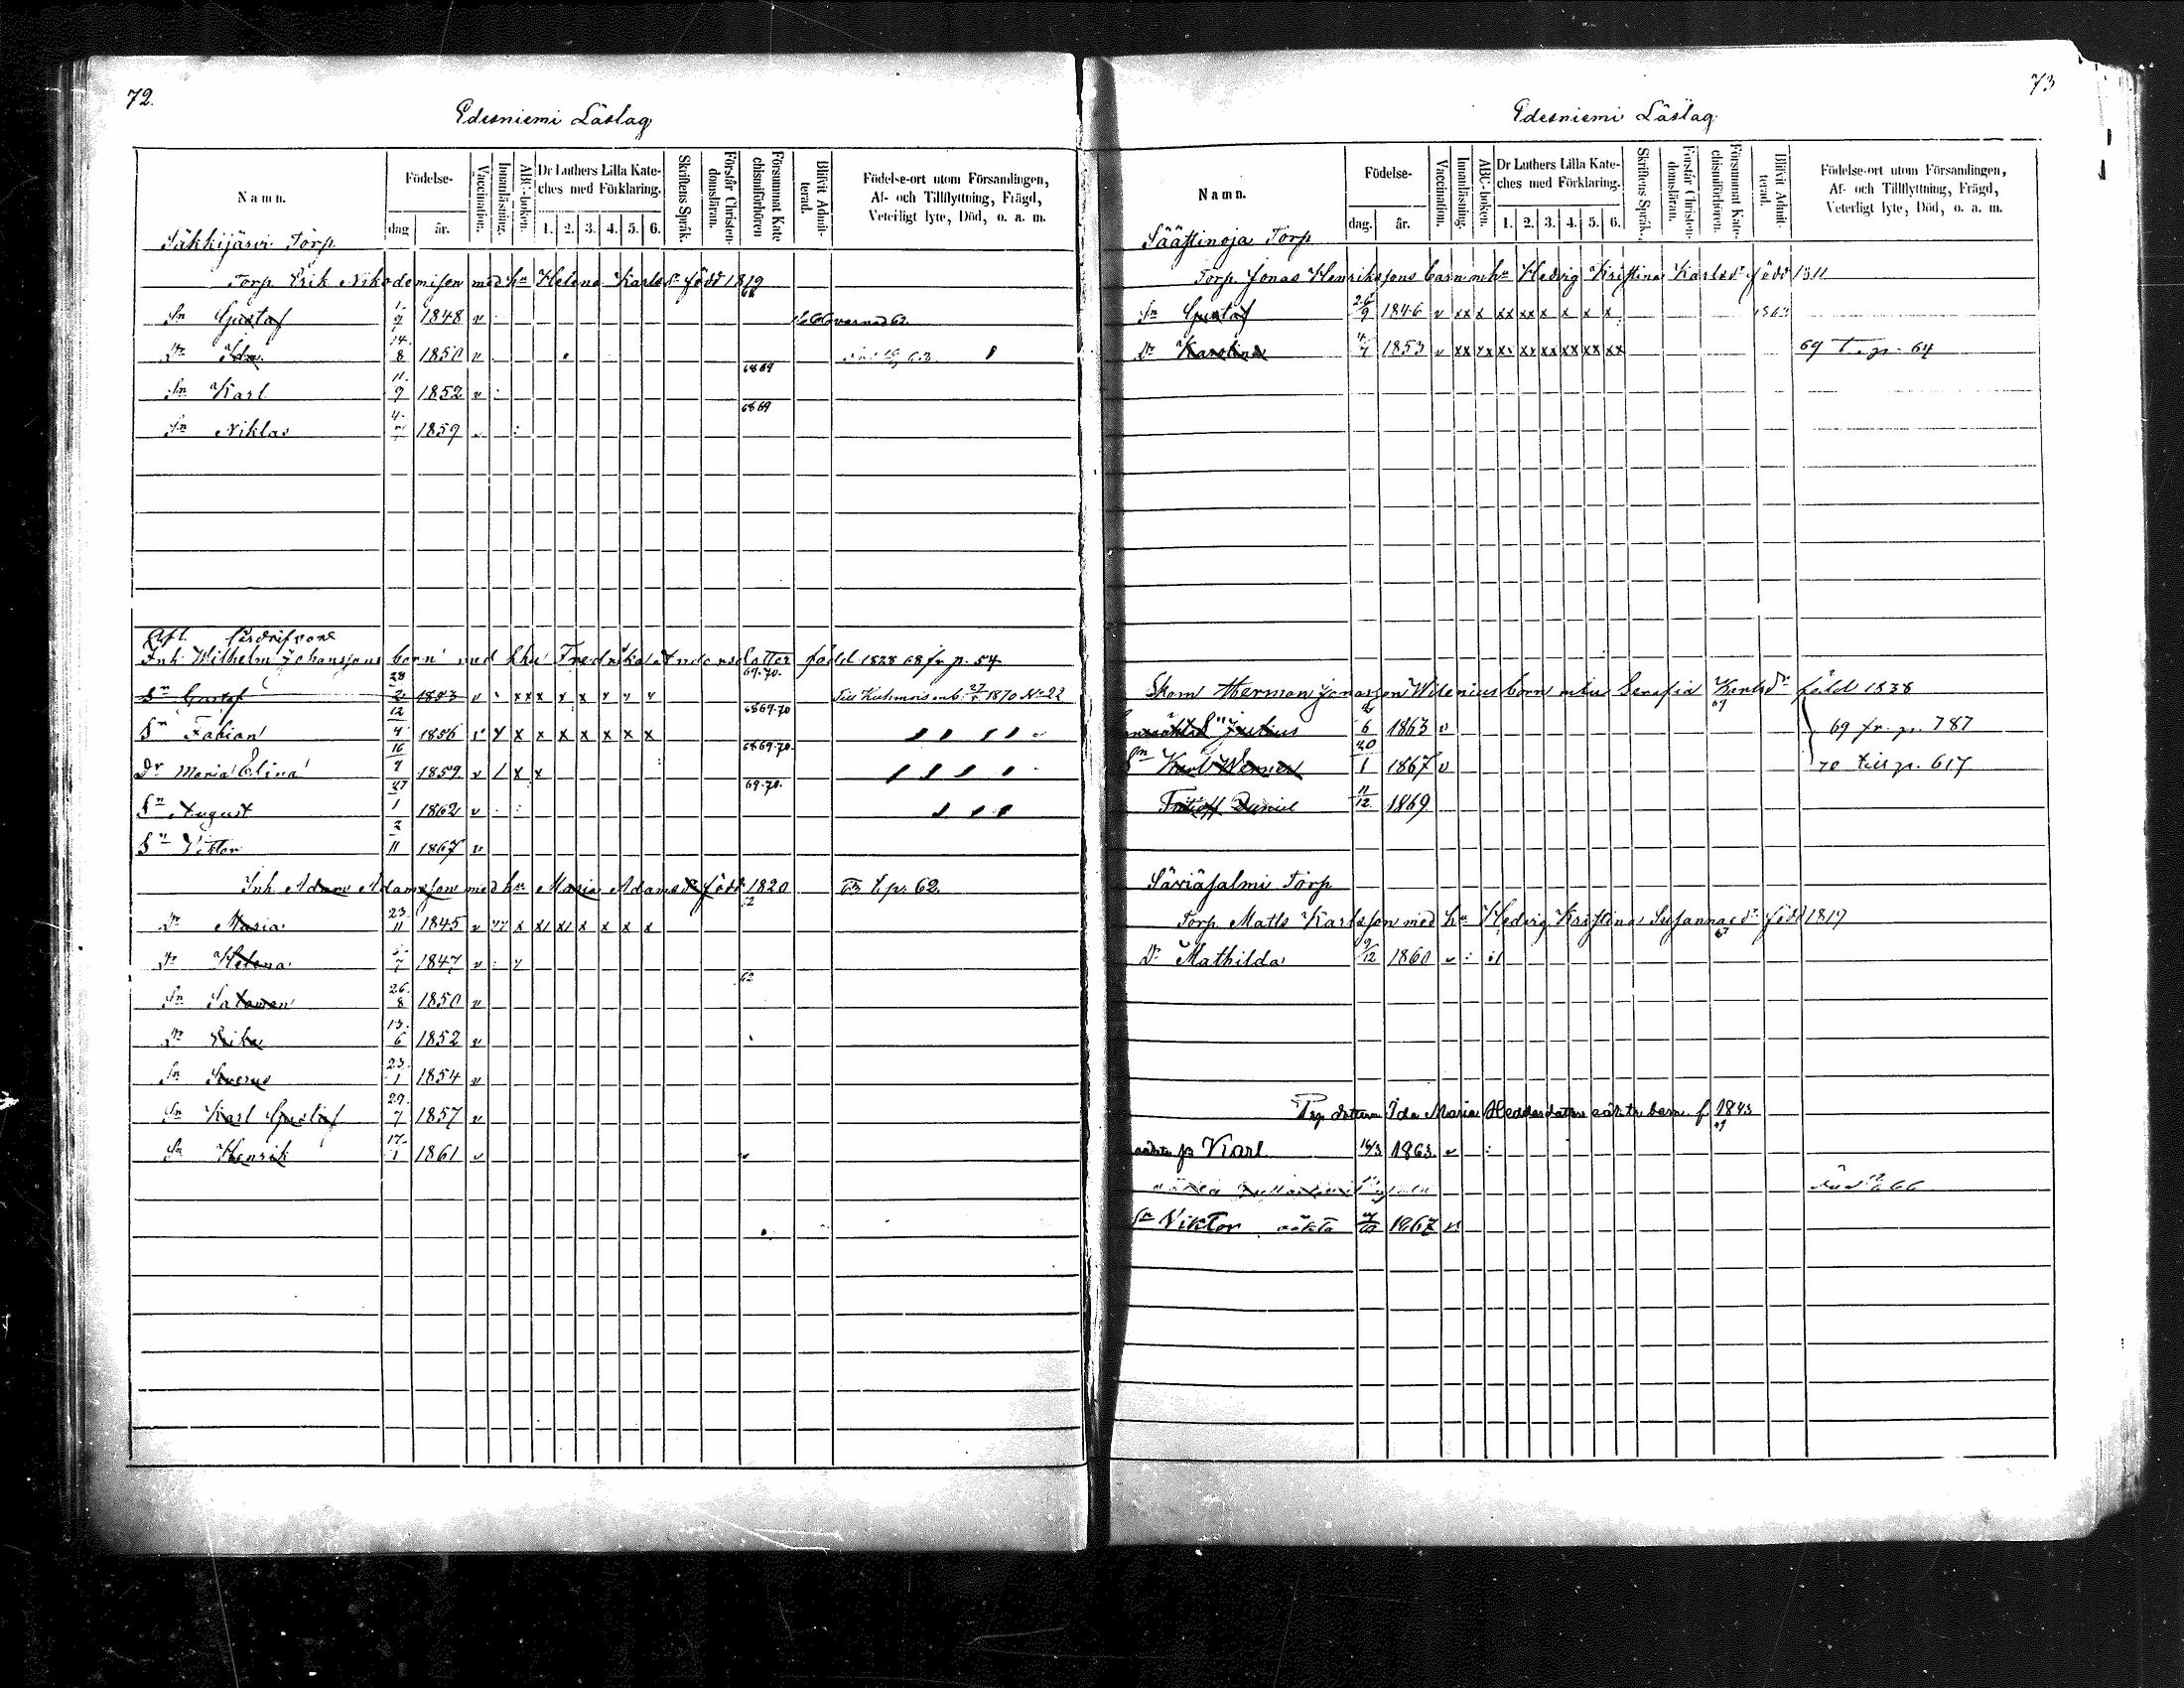 72.
Edesniemi Läslag
Namn.
Födelse-
dag
år.
Vaccination.
Innanläsning.
ABC-boken.
Dr Luthers Lilla Kate-
ches med Förklaring.
1. 2. 3. 4. 5. 6.
Skriftens Språk.
Förstår Christen-
domsläran.
Försummat Kate
chismiförhören
Blifvit Admit-
terad.
Födelse-ort utom Församlingen,
Af- och Tillflyttning, Frägd,
Veterligt lyte, Död, o. a. m.
Säkkijärvi Torp
Torp Erik Nikodemisson med hu Helena Karlsdr född 1819
Sn Gustaf 9 1848 v
Dr Ida 14. 8 1850 v 63
68 69
Sn Karl 11. 9 1852 v
68 69
Sn Niklas 4. 1859
Inh. Wilhelm Johanssons barn med hu Fredrika Andersdotter född 1828 68 fr p. 54
69.70.
Sn Gustaf 28 2 1853 v xxx x x Till Kuhmois 27 1870 No 22
68 69.70
Sn Fabian 12 4 1856 x x x x x x x
68 69.70.
Dr Maria Elina 16 1859 v / x x
69.70.
Sn August 27 1 1862 v
Sn Viktor 2 11 1867 v
Inh. Adam Adamsson med hu Maria Adamsdr född 1820 63 t. p. 62.
62
Dr Maria 23 11 1845 v x x x x x x x
Dr Helena 7 1847 v
62
Sn Salomon 26. 8 1850 v
Dr Erika 13. 6 1852 v
Sn Severus 23. 1 1854 v
Sn Karl Gustaf 29. 7 1857 v
Sn Henrik 17. 1 1861 v
73
Edesniemi Läslag
Namn.
Födelse-
dag.
år.
Vaccination.
Innanläsning.
ABC-boken.
Dr Luthers Lilla Kate-
ches med Förklaring.
1. 2. 3. 4. 5. 6.
Skriftens Språk.
Förstår Christen-
domsläran.
Försummat Kate-
chismiförhören.
Blifvit Admit-
terad.
Födelse-ort utom Församlingen,
Af- och Tillflyttning, Frägd,
Veterligt lyte, Död, o. a. m.
Säästinoja Torp
Torp. Jonas Henrikssons barn m hu Hedvig Kristina Karlsdr född 1811
Sn Gustaf 26/9 1846 v xx x xx xx x x x x 1863
Dr Karolina 4/7 1853 v xx xx xx xx xx xx xx xx 69 T. p. 64
Skom Herman Jonasson Wilenius barn m hu Serafia Karlsdr född 1838
69
Sn Justus 6 1863 v 69 fr. p. 787
Sn Karl Werner 20 1 1867 v 70 till p. 617
Fritioff Daniel 11 12. 1869
Säviäsalmi Torp
Torp Matts Karlsson med hu Hedvig Kristina Susannasdr född 1817
67
Dr Mathilda 9/12 1860 v
Torp dottern Ida Maria Heddasdotters oäkta barn f. 1843
oäkta gs Karl 16/3 1863. v
död 66
Sn Viktor oäkta 1867 v